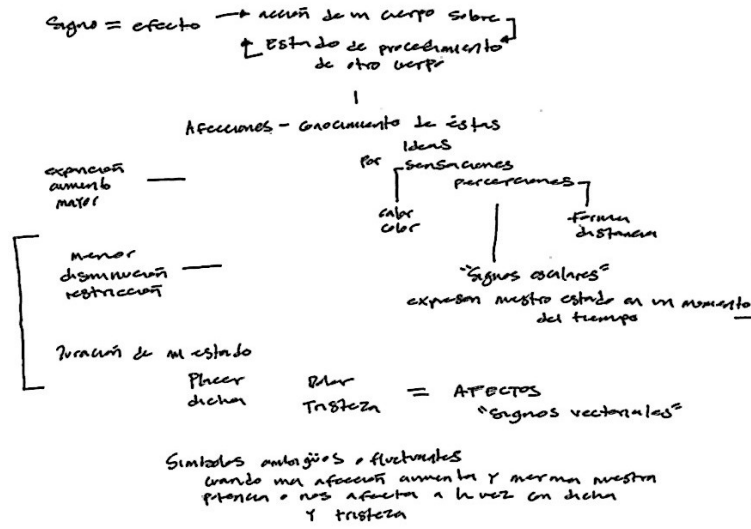 Signo = efecto → acción de un cuerpo sobre
Estado de procedimiento
de otro cuerpo
Afecciones - conocimiento de éstas
Ideas
por sensaciones
percepciones
expanción
aumento
mayor
calor
color
forma
distancia
menor
disminución
restricción
"Signos escalares"
expresan nuestro estado en un momento
del tiempo
Duración de un estado
Placer Dolor = AFECTOS
dicha Tristeza "Signos vectoriales"
Símbolos ambigüos o fluctuantes
cuando una afección aumenta y merma nuestra
potencia o nos afecta a la vez con dicha
y tristeza